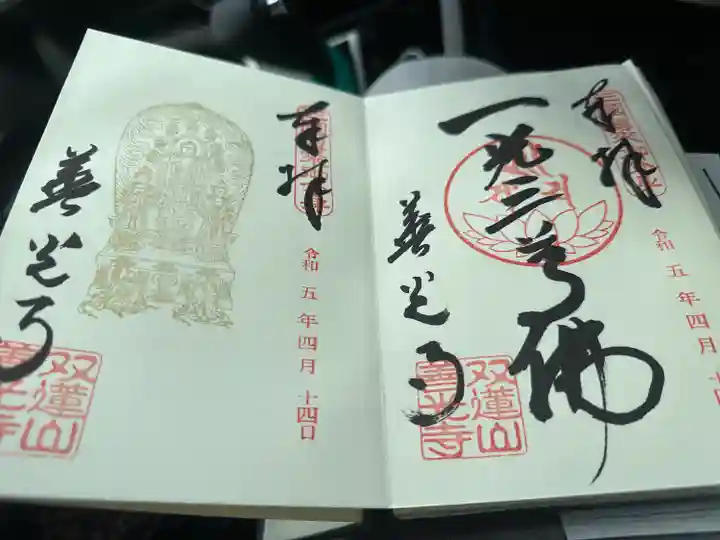 奉拝
一光三尊佛
善光寺
令和五年四月十四日
双蓮山
善光寺
奉拝
令和五年四月十四日
善光寺
双蓮山
善光寺